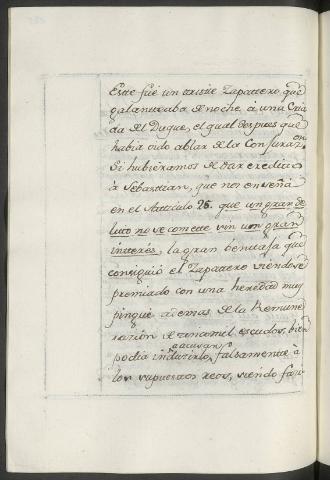 Este fué un triste Zapattero, que
galanteaba de noche á una Cria
da del Duque, el qual despues que
havia oido ablar de la Conjuraz.on
Si hubieramos de dar credito
à Sebastian, que nos enseña
en el Artticulo 26. que un gran de
lito no se comette sin un gran
interés, la gran bentaja que
consiguió el Zapattero viendose
premiado con una heredad muy
pingue ademas de la Remune
razion de cincomil escudos, bien
podia induzirlo, a acusar falsamente à
los supuestos reos, siendo fazi